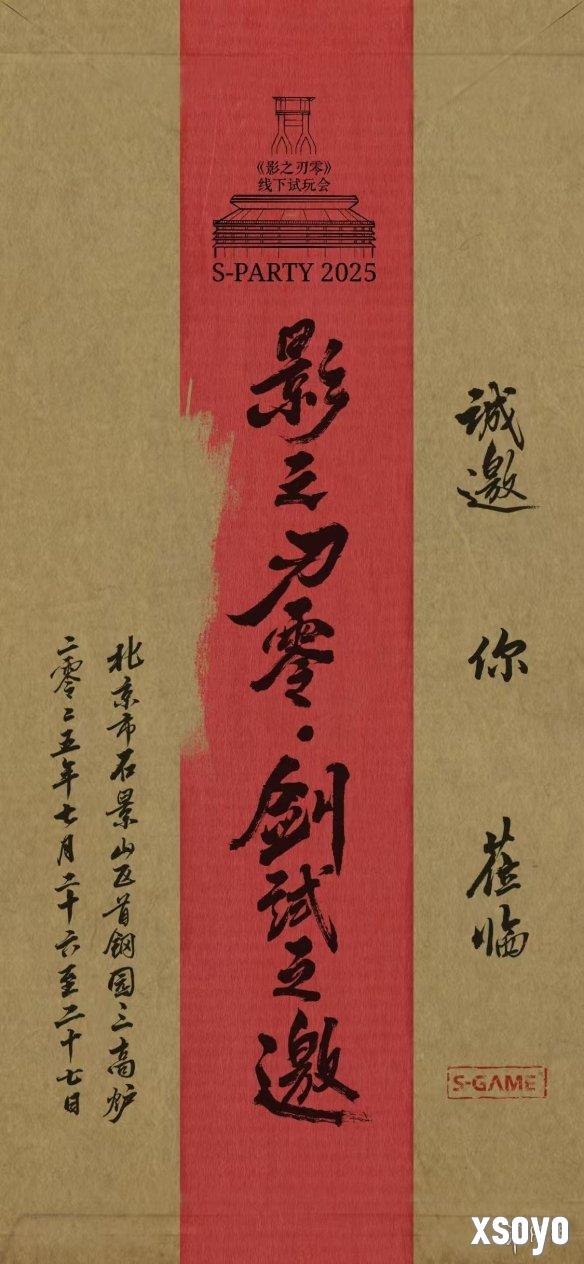 《影之刃零》
线下试玩会
S-PARTY 2025
誠邀 你 莅临
影之刃零·劍試之邀
北京市石景山区首钢园三高炉
二零二五年七月二十六至二十七日
S-GAME
xsoyo